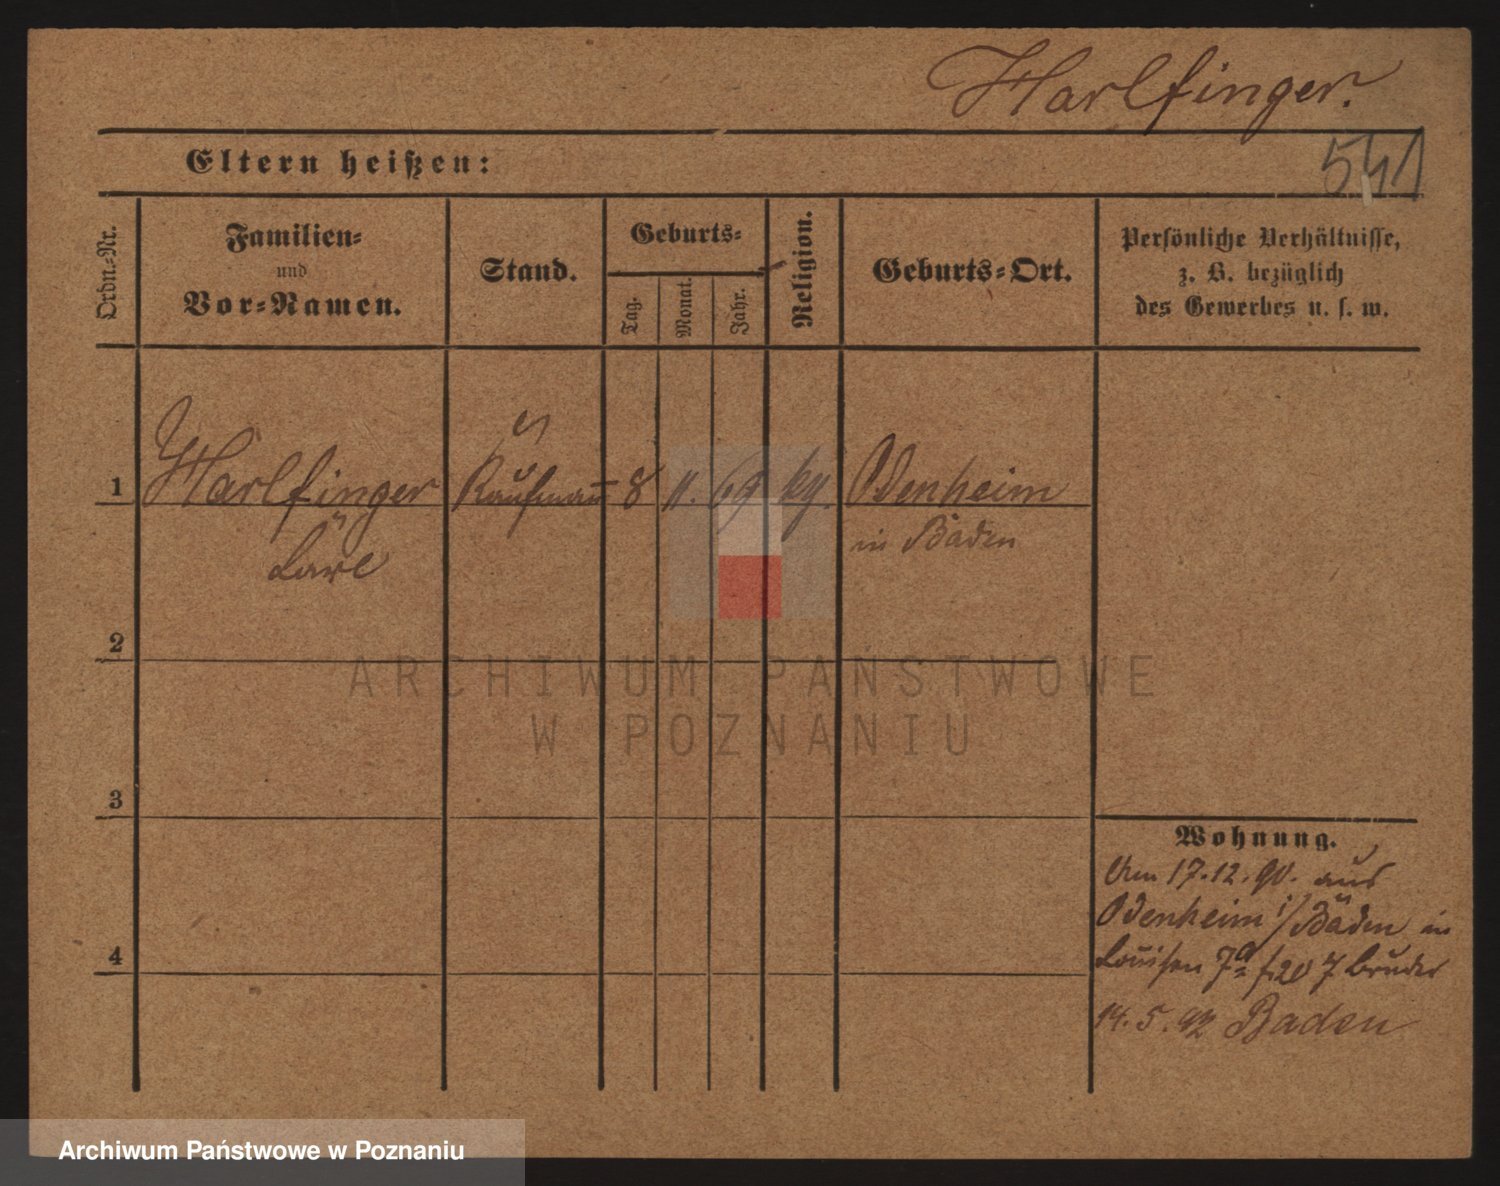 Harlfinger.
541
Eltern heißen:
Ordn.-Nr.
Familien-
und
Vor-Namen.
Stand.
Geburts-
Tag.
Monat.
Jahr.
Religion.
Geburts-Ort.
Persönliche Verhältnisse,
z. B. bezüglich
des Gewerbes u. s. w.
1 Harlfinger Kaufmann 8 11. 69 Odenheim
Carl in Baden
2
3
4
Wohnung.
Am 17.12.90. aus
Odenheim i/Baden in
Louisen 7a Bruder
14.5.92 Baden
ARCHIWUM PAŃSTWOWE
W POZNANIU
Archiwum Państwowe w Poznaniu